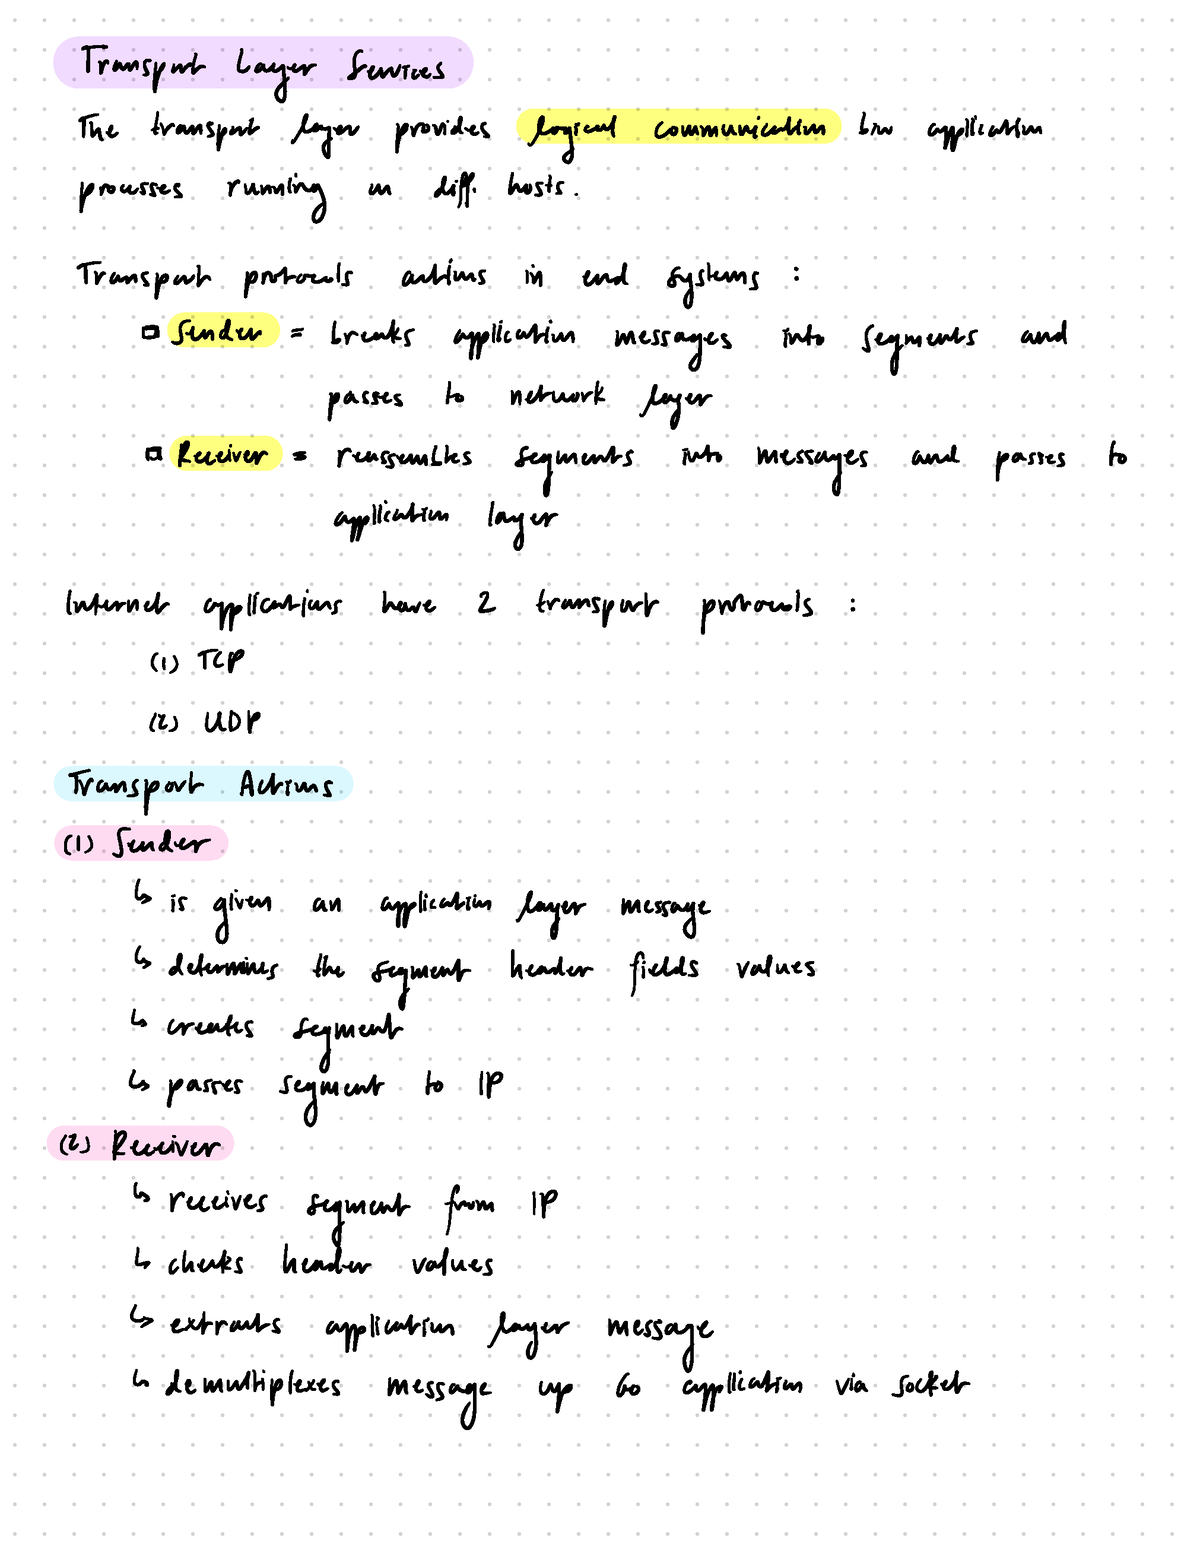 Transport Layer Services
The transport layer provides logical communication btw application
processes running on diff. hosts.
Transport protocols actions in end systems :
Sender = breaks application messages into segments and
passes to network layer
Receiver = reassembles segments into messages and passes to
application layer
Internet applications have 2 transport protocols :
(1) TCP
(2) UDP
Transport Actions
(1) Sender
↳ is given an application layer message
↳ determines the segment header fields values
↳ creates segment
↳ passes segment to IP
(2) Receiver
↳ receives segment from IP
↳ checks header values
↳ extracts application layer message
↳ demultiplexes message up to application via socket